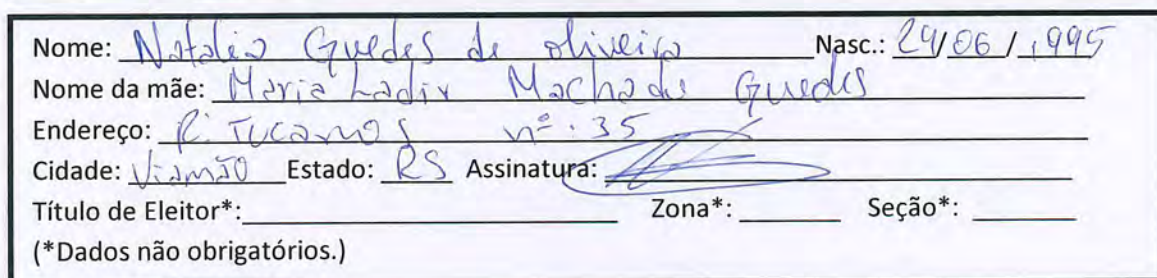 Nome: Natalia Guedes de oliveira Nasc.: 29/06/1995
Nome da mãe: Maria Ladir Machado Guedes
Endereço: R. Tucanos nº. 35
Cidade: Viamão Estado: RS Assinatura:
Título de Eleitor*: Zona*: Seção*:
(*Dados não obrigatórios.)